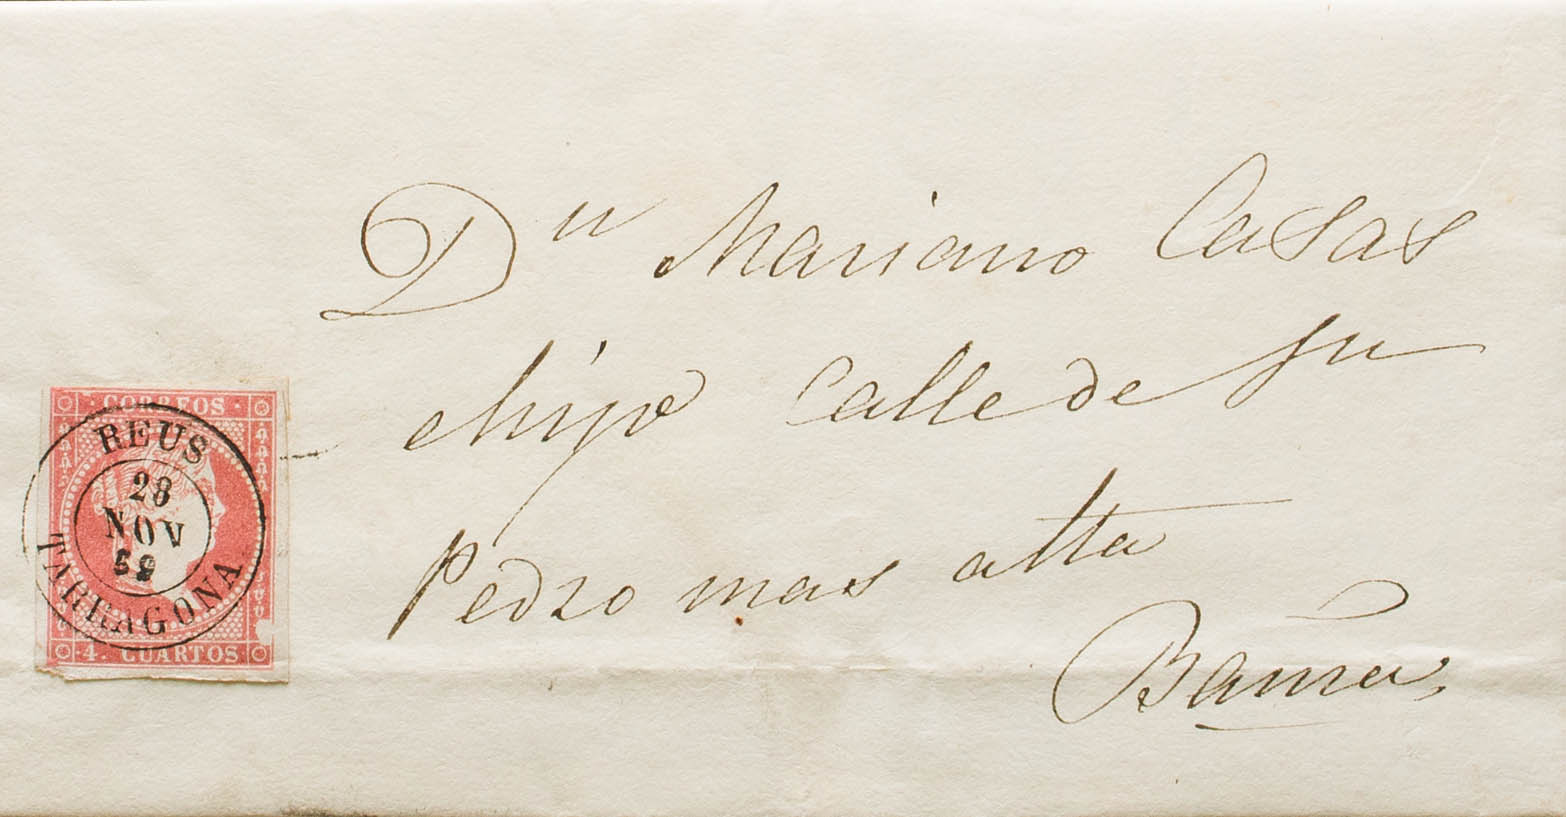 Dn Mariano Casas
e hijo calle de Sn
Pedro mas alta
Barna
CORREOS
REUS
28
NOV
59
TARRAGONA
4. CUARTOS